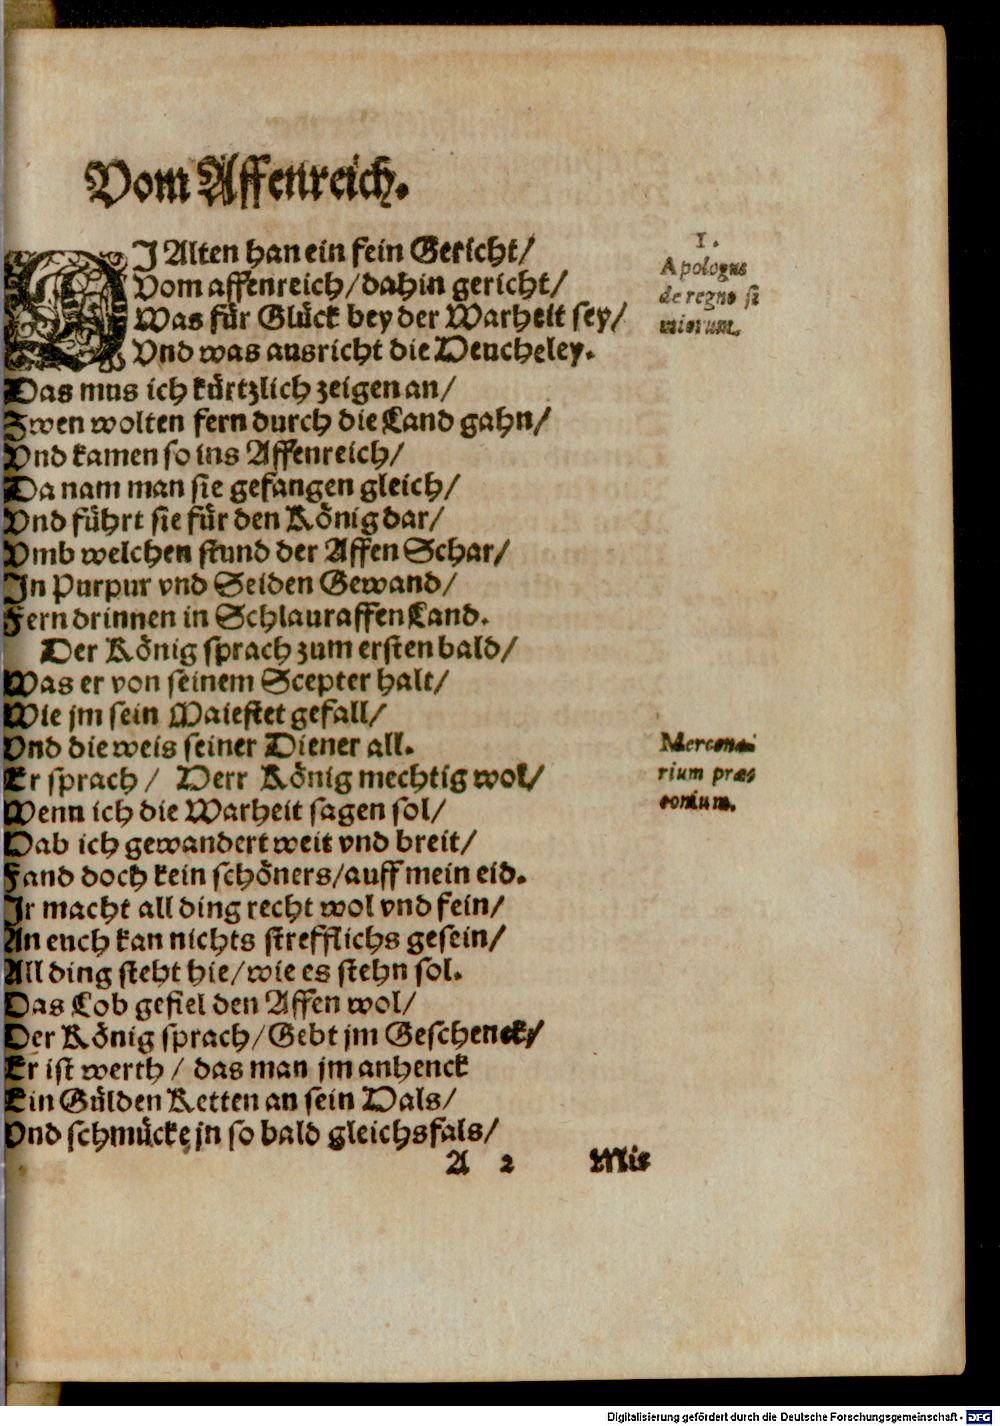 Vom Affenreich.
DJ Alten han ein fein Gericht/
Vom affenreich/dahin gericht/
Was für Glück bey der Warheit sey/
Vnd was ausricht die Heucheley.
Das mus ich kürtzlich zeigen an/
Zwen wolten fern durch die Land gahn/
Vnd kamen so ins Affenreich/
Da nam man sie gefangen gleich/
Vnd führt sie für den König dar/
Vmb welchen stund der Affen Schar/
Jn Purpur vnd Seiden Gewand/
Fern drinnen in Schlauraffen Land.
Der König sprach zum ersten bald/
Was er von seinem Scepter halt/
Wie jm sein Maiestet gefall/
Vnd die weis seiner Diener all.
Er sprach / Herr König mechtig wol/
Wenn ich die Warheit sagen sol/
Hab ich gewandert weit vnd breit/
Fand doch kein schöners/auff mein eid.
Jr macht all ding recht wol vnd fein/
An euch kan nichts strefflichs gesein/
All ding steht hie/wie es stehn sol.
Das Lob gefiel den Affen wol/
Der König sprach/Gebt jm Geschenck/
Er ist werth / das man jm anhenck
Ein Gülden Ketten an sein Hals/
Vnd schmücke jn so bald gleichsfals/
A 2 Mis
1.
Apologus
de regno si
miorum.
Mercena
rium præ
conium.
Digitalisierung gefördert durch die Deutsche Forschungsgemeinschaft - DFG